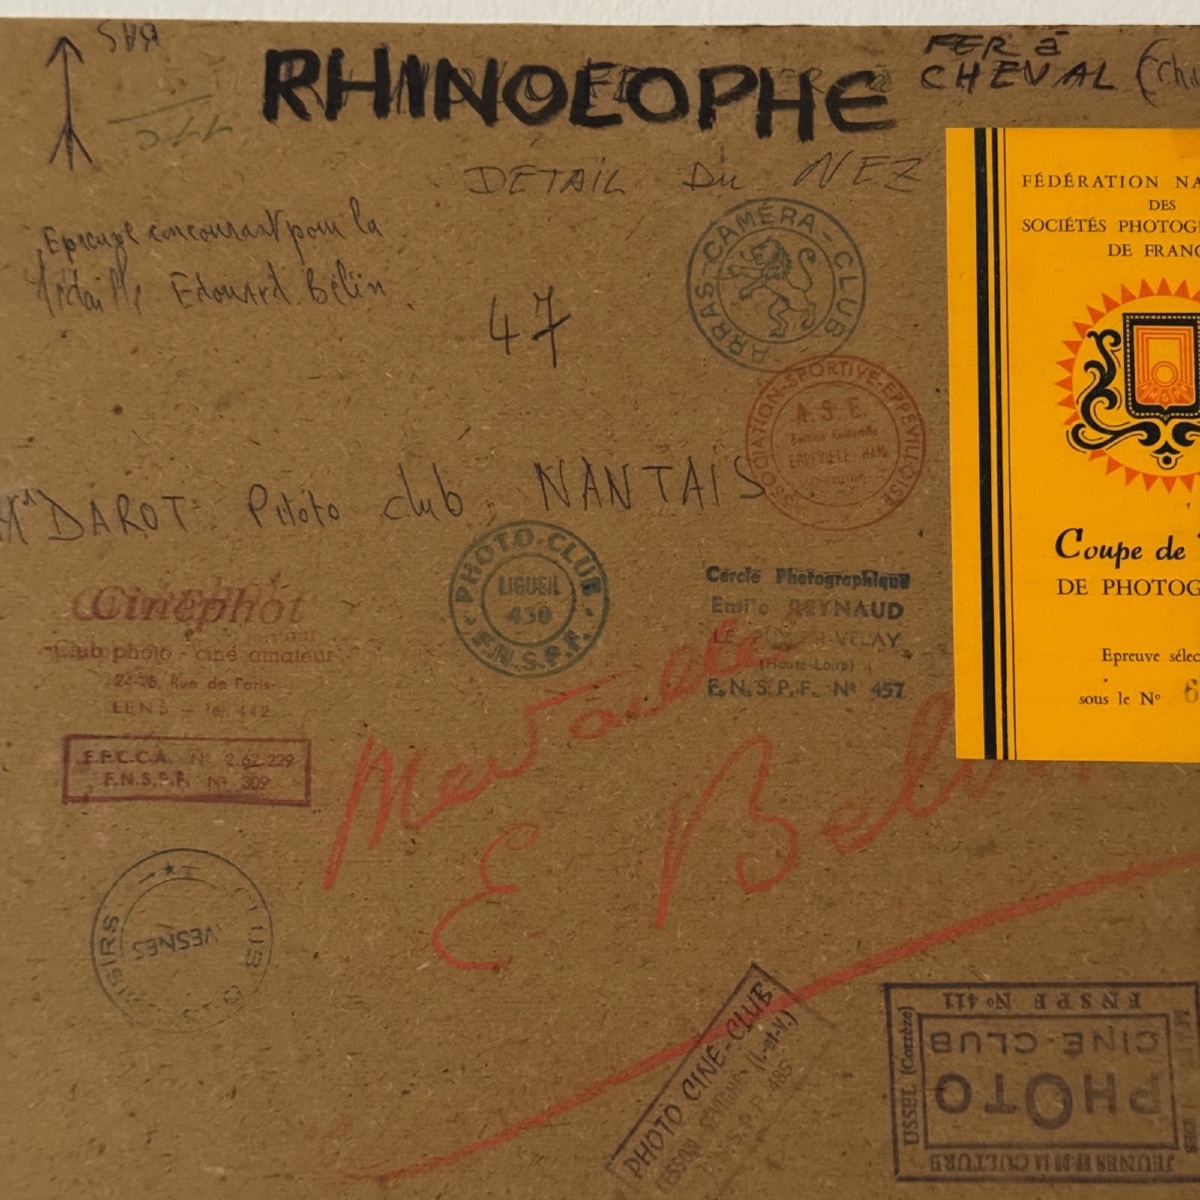 RAS
RHINOLOPHE
FER à
CHEVAL
DETAIL DU NEZ
Epreuve concourant pour la
Médaille Edouard Bélin
47
ARRAS-CAMÉRA-CLUB
ASSOCIATION-SPORTIVE-EPPEVILLOISE
A.S.E.
EPPEVILLE-HAM
Mr DAROT Photo club NANTAIS
PHOTO-CLUB
LIGUEIL
430
F.N.S.P.F.
Cinéphot
Club photo - ciné amateur
24-26, Rue de Paris
LENS - Tél. 442
F.F.C.C.A. N° 2.62.229
F.N.S.P.F. N° 309
Cercle Photographique
Emile REYNAUD
LE PUY-EN-VELAY
(Haute-Loire)
F.N.S.P.F. N° 457
Medaille
E Belin
FÉDÉRATION NA
DES
SOCIÉTÉS PHOTOG
DE FRANC
Coupe de
DE PHOTOG
Epreuve sélec
sous le N° 6
AVESNES
PHOTO CINE-CLUB
ESSOR
F.N.S.P.F. 485
FNSPF No 411
CINÉ-CLUB
PHOTO
USSEL (Corrèze)
JEUNES ET DE LA CULTURE